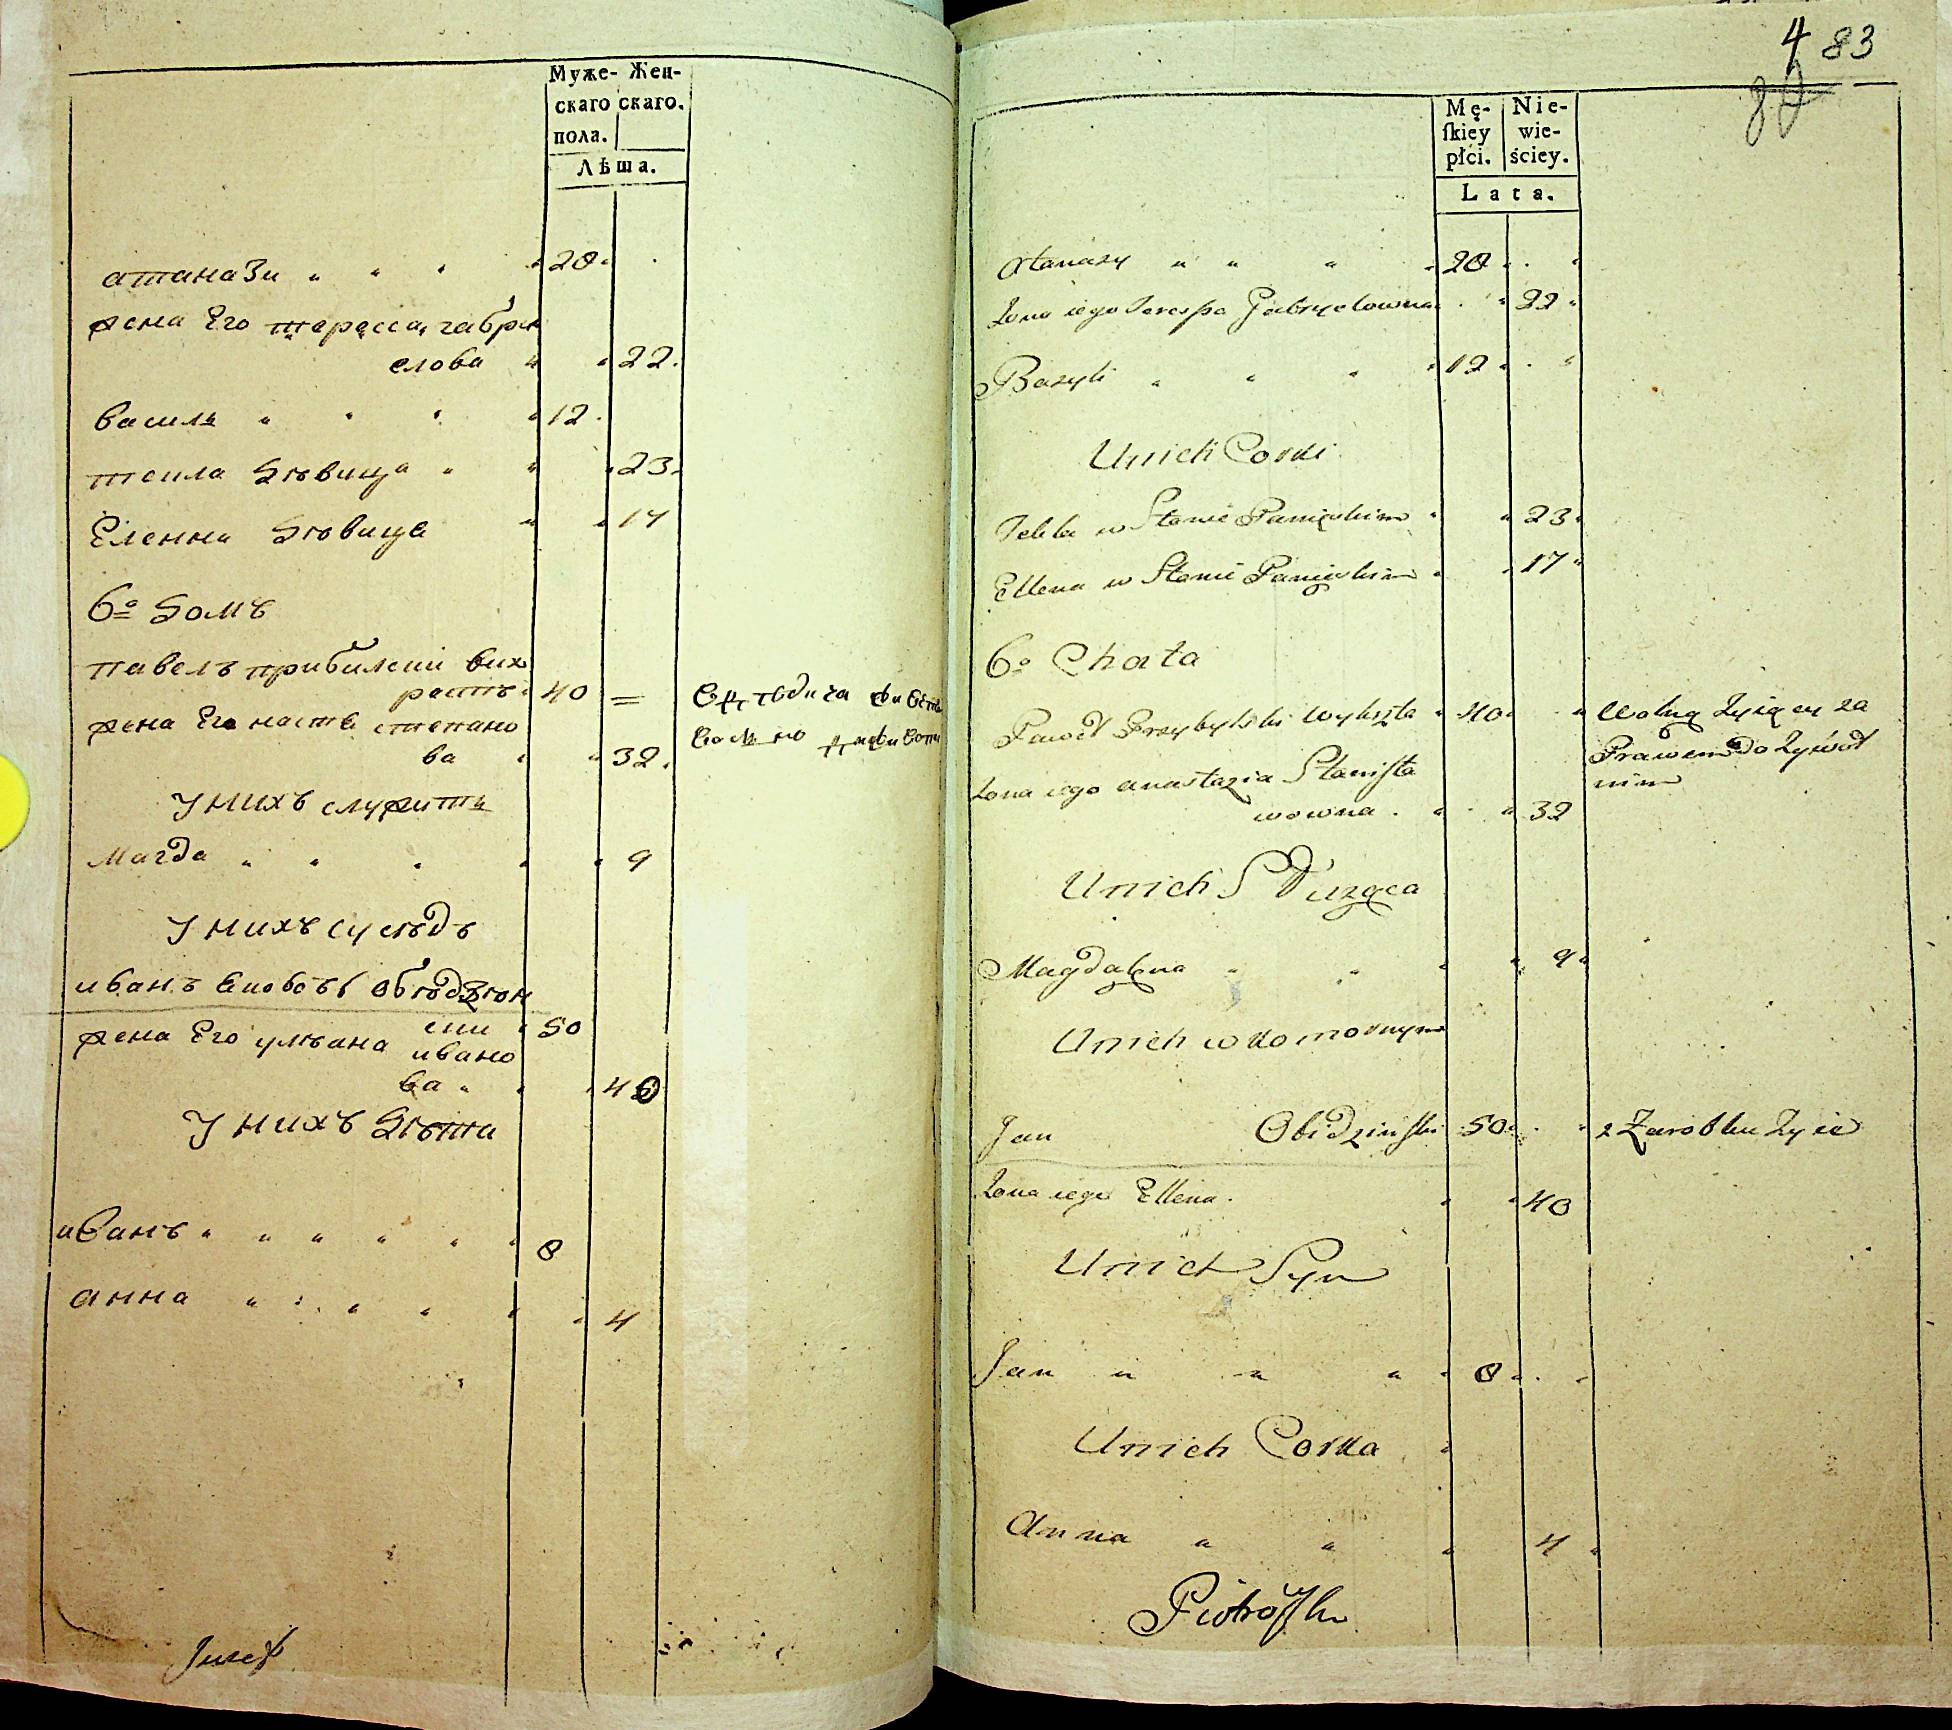 Муже- Жен-
скаго скаго.
пола.
Лѣта.
атанаЗи 20
жена Его тересса габри
елова 22.
василь 12
текла Дѣвица 23
Еленна Дѣвица 17
6о Домъ
павелъ прибилски вих
рестъ 40
жена Его наста степано
ва 32
У нихъ служитъ
Магда 9
У нихъ сусѣдъ
иванъ обѣдзѣн
ски 50
жена Его улѣана ивано
ва 40
У нихъ Дѣти
иванъ 8
анна 4
Juzef
4 83
Mę- Nie-
ſkiey wie-
płci. ściey.
Lata.
Atanazy 20
Zona iego Teressa Gabryelowna 22
Bazyli 12
Unich Corki
Tekla w Stanie Panięskim 23
Ellena w Stanie Panięskim 17
6o Chata
Paweł Przybylski Wykszta 40 Wolny Zyiący za
Prawem Dożywot
nim
Zona iego Anastazia Stanisła
wowna 32
Unich Służąca
Magdalena 9
Unich w Komornym
Jan Obidzinski 50 z Zarobku Zyie
Zona iego Ellena 40
Unich Syn
Jan 8
Unich Corka
Anna 4